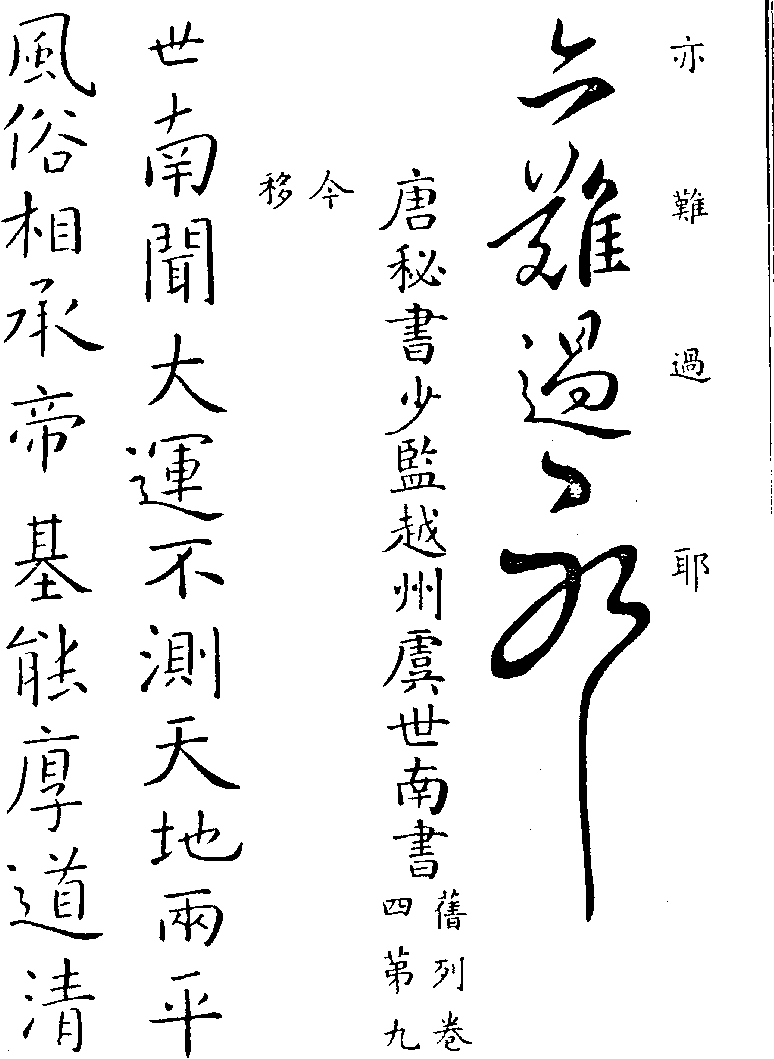 亦難過耶
亦難過耶
唐秘書少監越州虞世南書
舊列卷
四第九
今
移
世南聞大運不測天地兩平
風俗相承帝基能厚道清